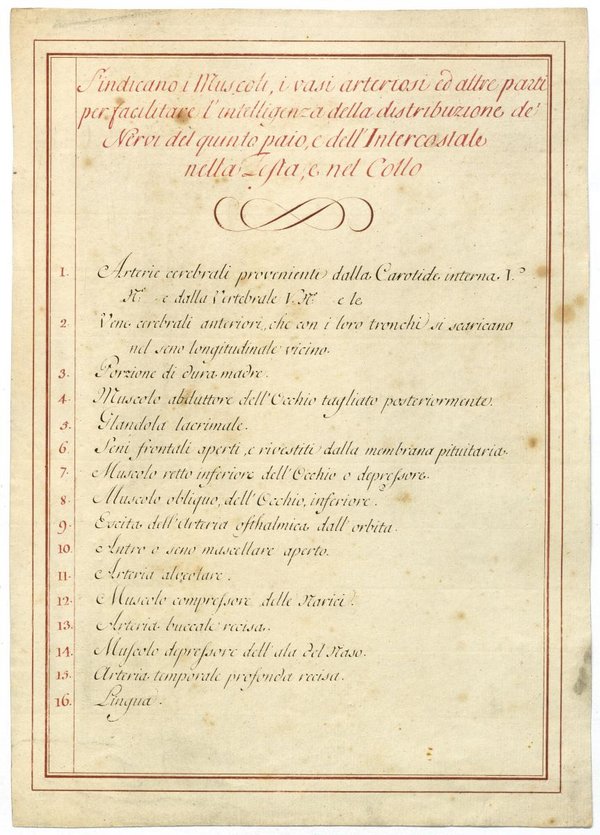 S'indicano i Muscoli, i vasi arteriosi ed altre parti
per facilitare l'intelligenza della distribuzione de'
Nervi del quinto paio, e dell'Intercostale
nella Testa, e nel Collo
1. Arterie cerebrali proveniente dalla Carotide interna V.º
N.º e dalla Vertebrale V. N.º e le
2 Vene cerebrali anteriori, che con i loro tronchi si scaricano
nel seno longitudinale vicino.
3. Porzione di dura madre.
4. Muscolo abduttore dell'Occhio tagliato posteriormente.
5. Glandola lacrimale.
6. Seni frontali aperti, e rivestiti dalla membrana pituitaria.
7. Muscolo retto inferiore dell'Occhio o depressore.
8. Muscolo obliquo, dell'Occhio, inferiore.
9. Escita dell'Arteria ofthalmica dall'orbita.
10. Antro o seno mascellare aperto.
11. Arteria alveolare.
12. Muscolo compressore delle Narici.
13. Arteria buccale recisa.
14. Muscolo depressore dell'ala del Naso.
15. Arteria temporale profonda recisa.
16. Lingua.